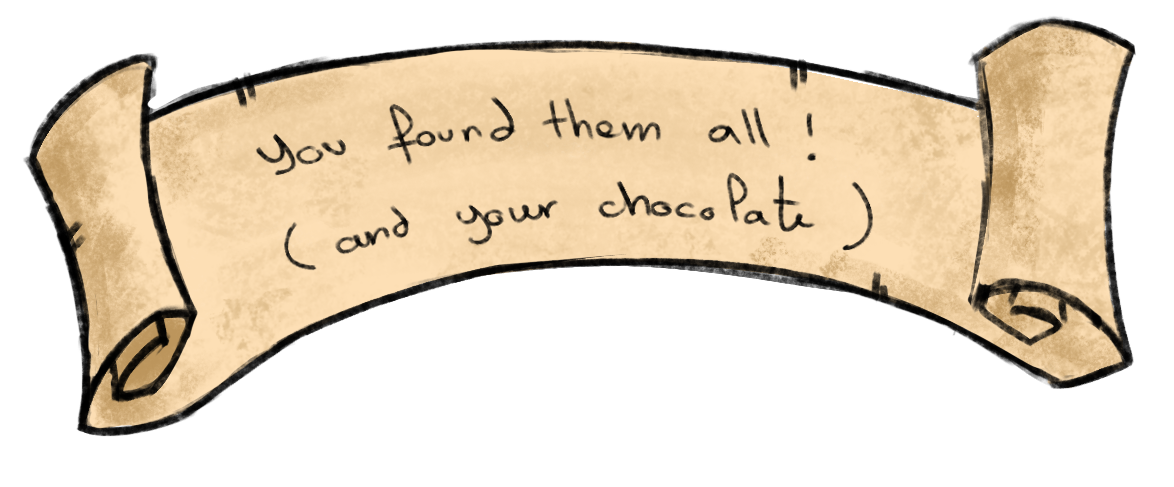 you found them all !
( and your chocolate )